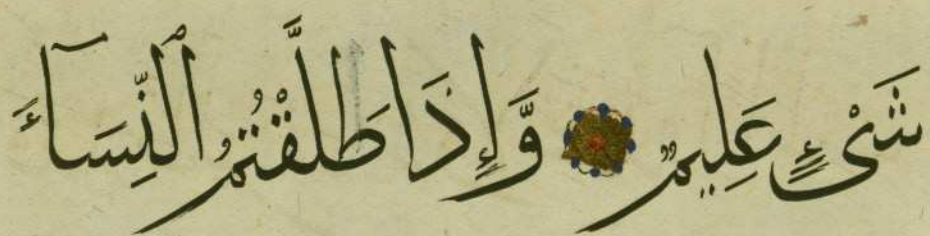 شَىْءٍ عَلِيمٌ وَّإِذَا طَلَّقْتُمُ ٱلنِّسَآءَ